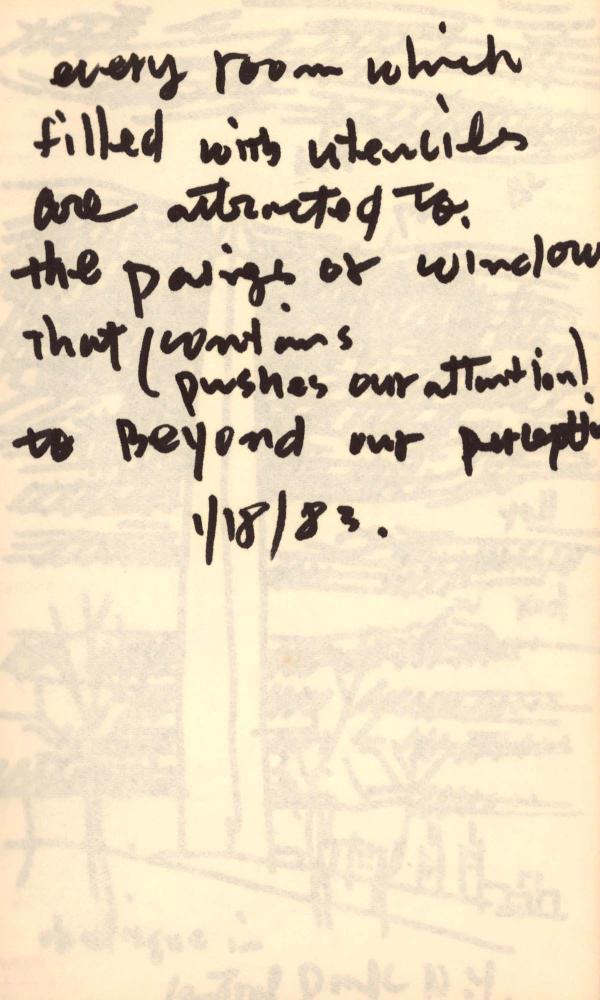 every room which
filled with utenciles
are attracted to.
the pairgs or window
that (contains
(pushes our attention)
to Beyond our percepti
1/18/83.
in
Central Park N.Y.